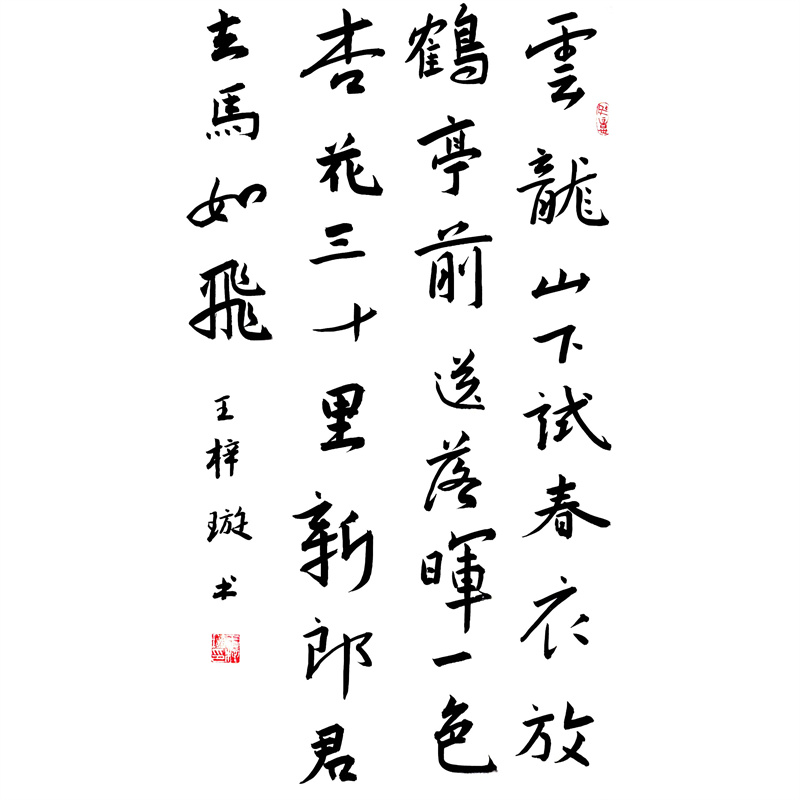 雲龍山下試春衣放
鶴亭前送落暉一色
杏花三十里新郎君
去馬如飛
王梓璇书